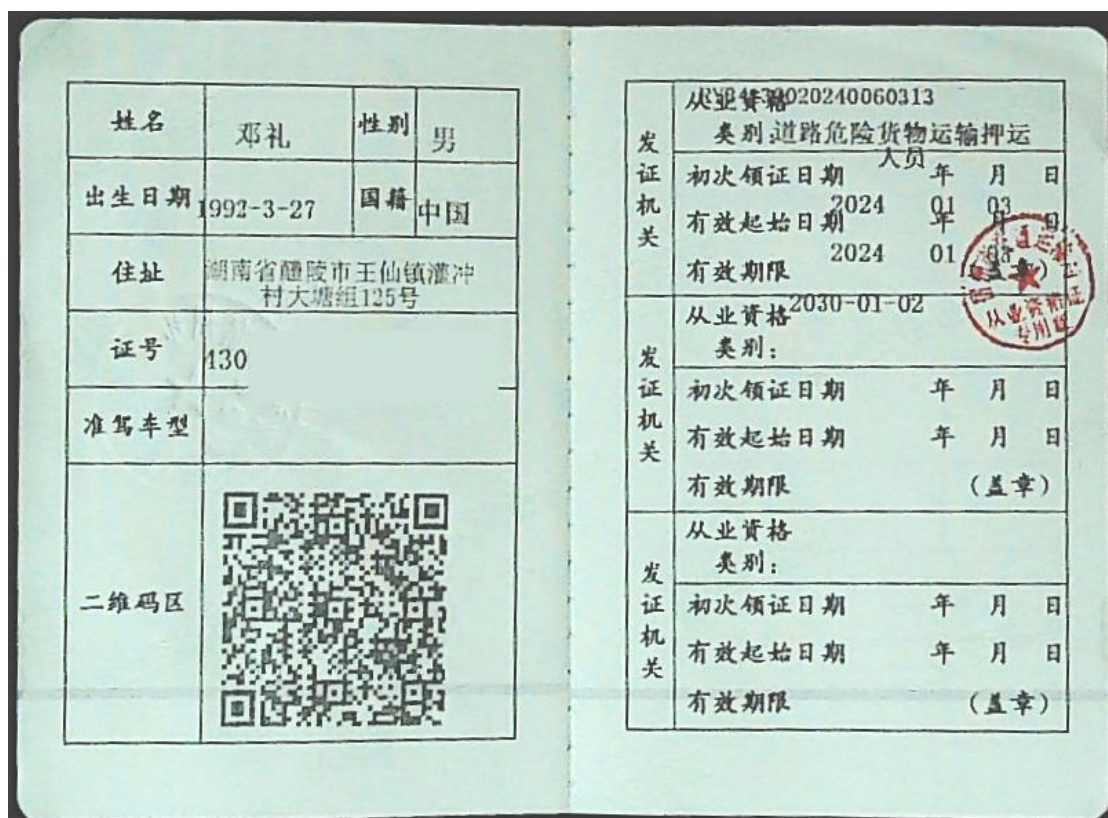 姓名 邓礼 性别 男
出生日期 1992-3-27 国籍 中国
住址 湖南省醴陵市王仙镇灌冲
村大塘组125号
证号 430
准驾车型
二维码区
发证机关
从业资格 020240060313
类别:道路危险货物运输押运
人员
初次领证日期 年 月 日
2024 01 03
有效起始日期 年 月 日
2024 01 03
有效期限 (盖章)
2030-01-02
从业资格证
专用章
发证机关
从业资格
类别:
初次领证日期 年 月 日
有效起始日期 年 月 日
有效期限 (盖章)
发证机关
从业资格
类别:
初次领证日期 年 月 日
有效起始日期 年 月 日
有效期限 (盖章)